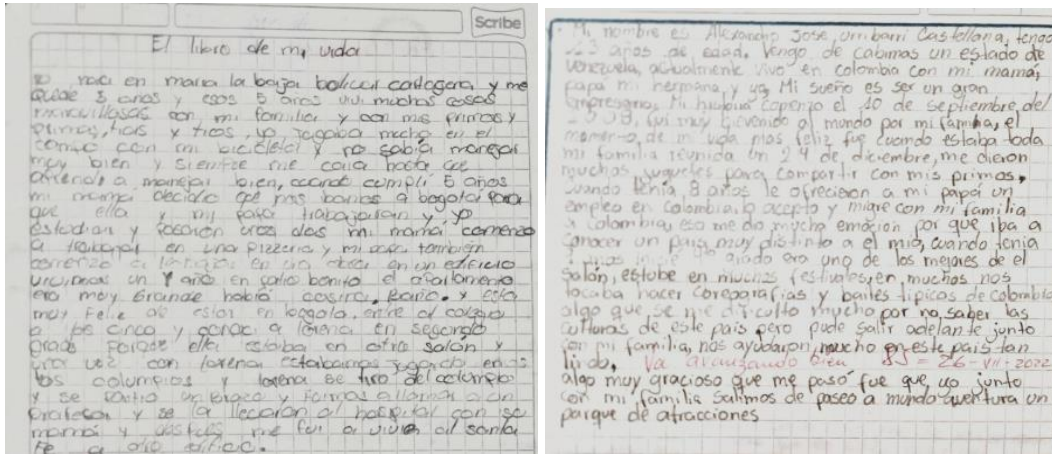 Scribe
El libro de mi vida
yo naci en maria la baja, bolivar cartagena y me
quede 5 anos y esos 5 años vivi muchas cosas
maravillosas con mi familia y con mis primos y
primas, tias y tios, yo jugaba mucho en el
campo con mi bicicleta y no sabia manejar
muy bien y siempre me caia hasta que
aprendi a manejar bien, cuando cumpli 5 años
mi mama decidio que nos bamos a bogota para
que ella y mi papa trabajaran y yo
estudiara y pasaron unos dias mi mama comenzo
a trabajar en una pizzeria y mi papa tambien
comenzo a en un edificio
vivimos un año en patio bonito el apartamento
era muy grande habia cosina, baño. y esta
muy feliz de estar en bogota, entre al colegio
a los cinco y conoci a lorena en segundo
grado porque ella estaba en otro salón y
una vez con lorena estabamos jugando en
los columpios y lorena se tiro del columpio
y se partio un brazo y fuimos a llamar a un
profesor y se la llevaron al hospital con su
mamá y despues me fui a vivir al santa
fe a otro edificio.
Mi nombre es Alexandro Jose urribarri Castellano, tengo
13 años de edad. Vengo de cabimas un estado de
venezuela, actualmente vivo en colombia con mi mamá,
papa mi hermana y yo, Mi sueño es ser un gran
empresario, Mi historia copenzo el 10 de septiembre del
fui muy bienvenido al mundo por mi familia, el
momento de mi vida mas feliz fue cuando estaba toda
mi familia reunida un 24 de diciembre, me dieron
muchos juguetes para compartir con mis primos,
cuando tenia 8 años le ofrecieron a mi papá un
empleo en colombia, lo acepto y migre con mi familia
a colombia, eso me dio mucha emoción por que iba a
conocer un pais muy distinto a el mio, cuando tenia
años inicie grado era uno de los mejores de el
salón, estube en muchos festivales, en muchos nos
tocaba hacer coreografias y bailes tipicos de colombia
algo que se me dificulto mucho por no saber las
culturas de este pais pero pude salir adelante junto
con mi familia, nos ayudaron mucho en este pais tan
lindo, Va avanzando bien = 26 - VII - 2022
algo muy gracioso que me pasó fue que yo junto
con mi familia salimos de paseo a mundo aventura un
parque de atracciones